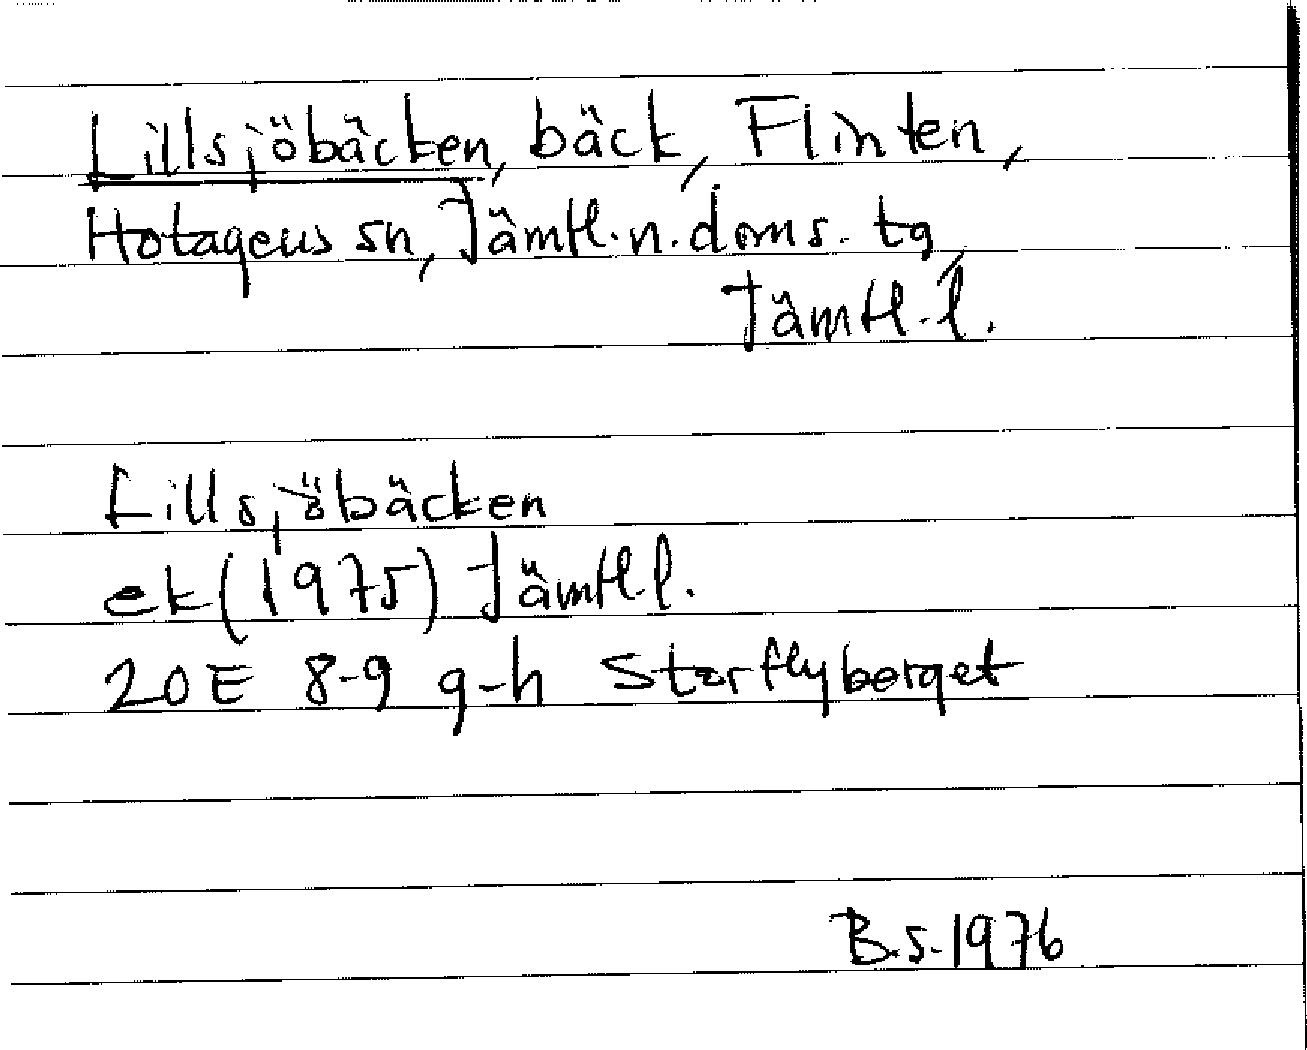 Lillsjöbäcken, bäck, Flinten,
Hotagens sn, Jämtl. n. doms. tg
Jämtl. l.
Lillsjöbäcken
ek (1975) Jämtl. l.
20E 8-9 g-h Storflyberget
B.S. 1976